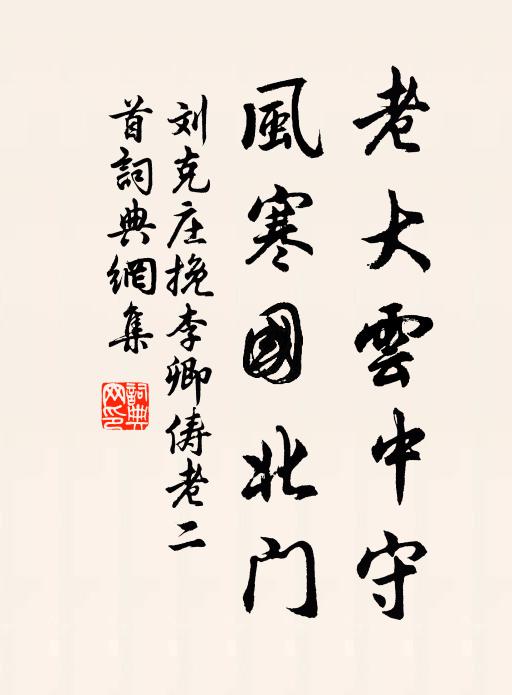 老大雲中守
風寒國北门
刘克庄挽李卿俦老二
首詞典網集
詞典
网印